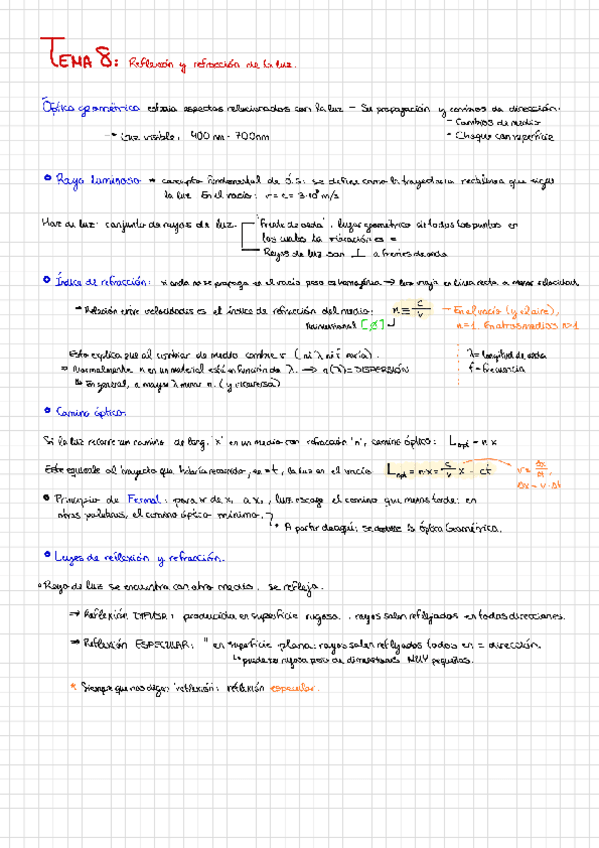 TEMA 8: Reflexión y refracción de la luz.
Óptica geométrica estudia aspectos relacionados con la luz - Su propagación y cambios de dirección.
- Cambios de medio
→ Luz visible: 400 nm - 700nm
- Choque con superficie
Rayo luminoso → concepto fundamental de O.G: se define como la trayectoria rectilínea que sigue
la luz. En el vacío: v = c = 3·10⁸ m/s
Haz de luz: conjunto de rayos de luz.
"Frente de onda", lugar geométrico de todos los puntos en
los cuales la vibración es =
Rayos de luz son ⊥ a frentes de onda
Índice de refracción: si onda no se propaga en el vacío pero es homogéneo → luz viaja en línea recta a menor velocidad.
→ Relación entre velocidades es el índice de refracción del medio: n ≡ c/v
→ En el vacío (y el aire),
n=1. En otros medios n>1
Adimensional [∅]
Esto explica que al cambiar de medio cambie v (ni λ ni f varía).
λ = longitud de onda
Normalmente n en un material está en función de λ. → n(λ) = DISPERSIÓN
f = frecuencia
En general, a mayor λ menor n. (y viceversa)
Camino óptico.
Si la luz recorre un camino de long. 'x' en un medio con refracción 'n', camino óptico: L opt = n x
Este equivale al trayecto que habría recorrido, en = t, la luz en el vacío L opt = n·x = c/v x = ct
v = Δx/Δt,
Δx = v·Δt
Principio de Fermat: para ir de x₁ a x₂, luz escoge el camino que menos tarde; en
otras palabras, el camino óptico mínimo.
A partir de aquí: se define la Óptica Geométrica.
Leyes de reflexión y refracción.
Rayo de luz se encuentra con otro medio, se refleja.
→ Reflexión DIFUSA: producida en superficie rugosa, rayos salen reflejados en todas direcciones.
→ Reflexión ESPECULAR: " en superficie plana: rayos salen reflejados todos en = dirección.
puede ser rugosa pero de dimensiones MUY pequeñas.
* Siempre que nos digan 'reflexión': reflexión especular.